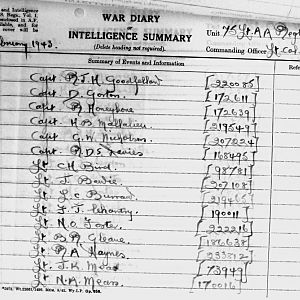 and Intelligence
S. Regs., Vol. I
in A.F.
able, and for
cover will be
WAR DIARY
OF
INTELLIGENCE SUMMARY
(Delete heading not required).
Unit 75 Lt. A.A Regt
Commanding Officer Lt Col.
February 1943.
Summary of Events and Information
Capt D. Gorton [172611]
Capt Honeybone [172639]
Capt H B Mallalieu [219549]
Capt G.W. Nicholson [207024]
Capt R.D.S. Davies [168495]
Lt C H Bird [98781]
Lt J. Bowie [207108]
Lt L.C. Burrow [219465]
Lt [190011]
Lt N.O. Foster [222216]
Lt B.R. Gleave [186638]
Lt P.A Haynes [233812]
Lt J.K. [73949]
Lt N.A. Mears [170016]